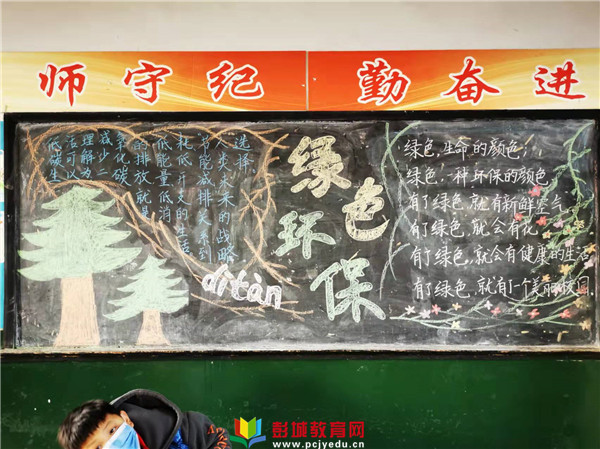 师守纪 勤奋进
低碳生
活可以
理解为
减少二
氧化碳
的排放就是
低能量低消
耗低开支的生活
节能减排关系到
人类未来的战略
选择
绿色环保
dītàn
绿色,生命的颜色;
绿色,一种环保的颜色
有了绿色,就有新鲜空气
有了绿色,就会有花
有了绿色,就会有健康的生活
有了绿色,就有了一个美丽校园.
彭城教育网
www.pcjyedu.cn